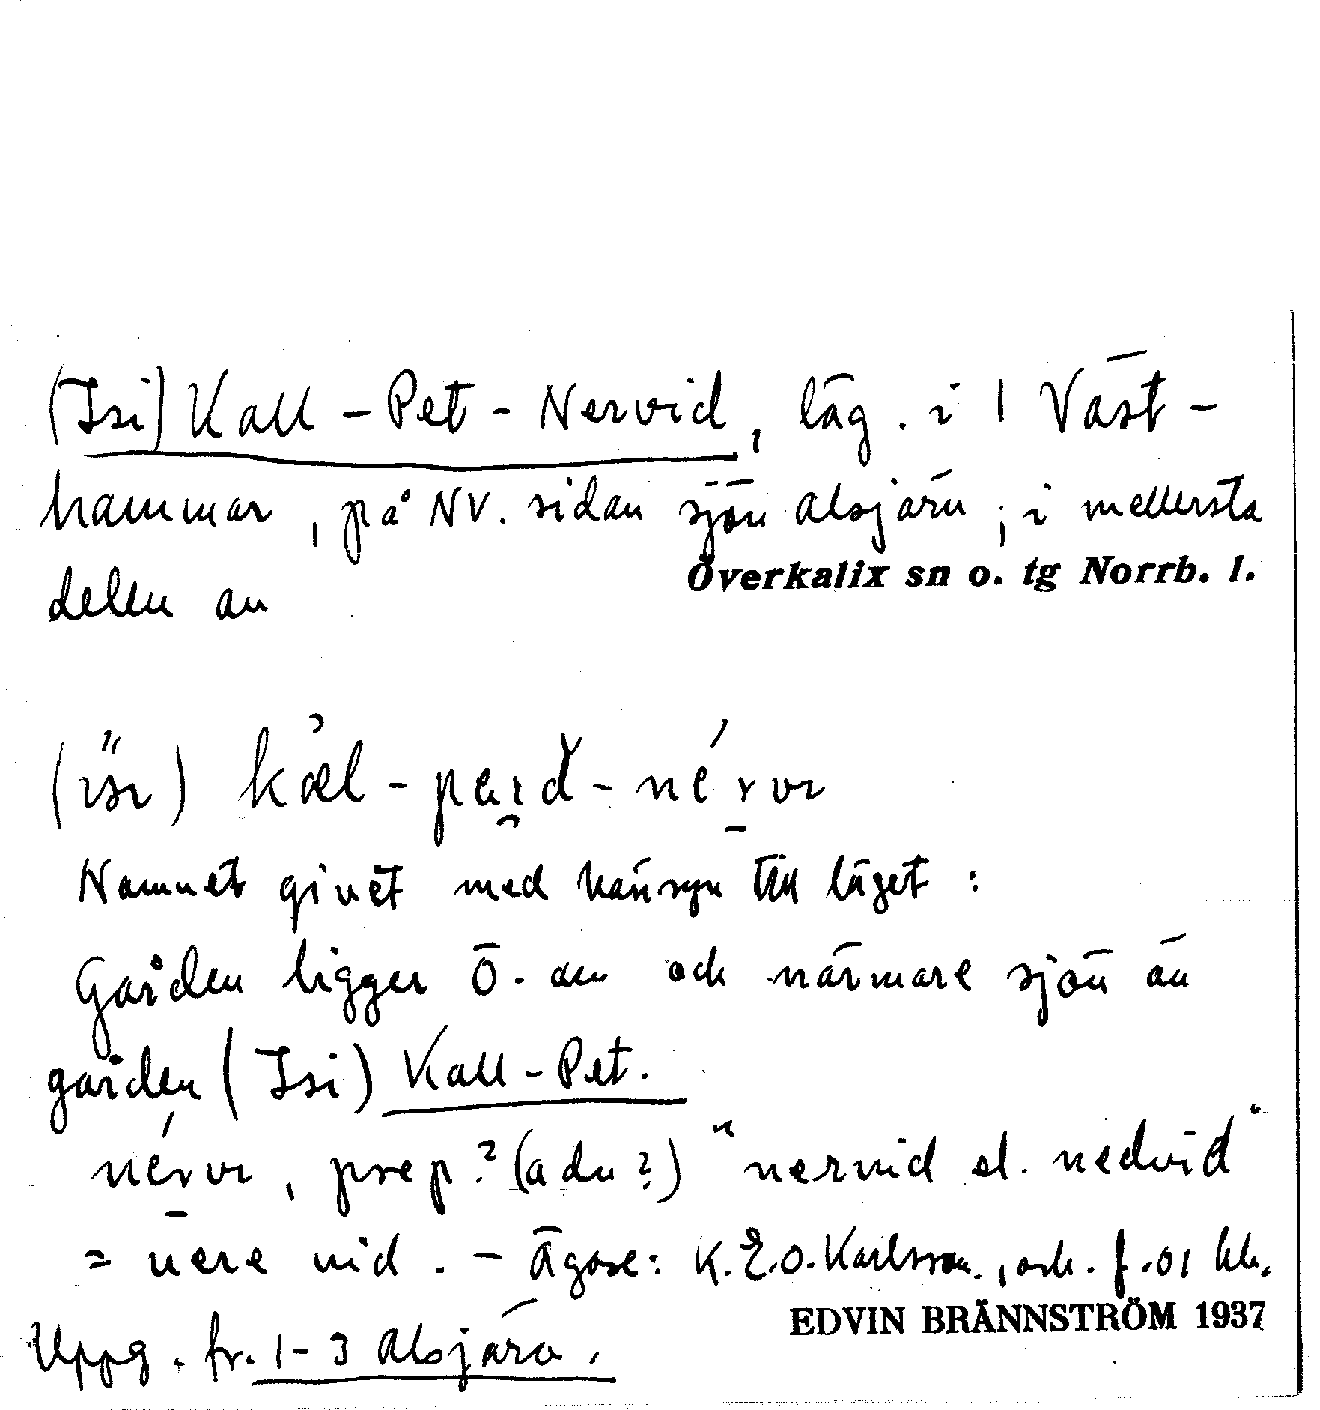 (Isi) Kall-Pet-Nervid, läg. i 1 Väst-
hammar, på NV. sidan sjön Alsjärv; i mellersta
delen av Överkalix sn o. tg Norrb. l.
Namnet givet med hänsyn till läget:
Gården ligger Ö. om och närmare sjön än
gården (Isi) Kall-Pet.
prep? (adv?) "nervid el. nedvid"
= nere vid. - Ägare: K.E.O. Karlsson., f. 01
EDVIN BRÄNNSTRÖM 1937
Uppg. fr. 1-3 Alsjärv.